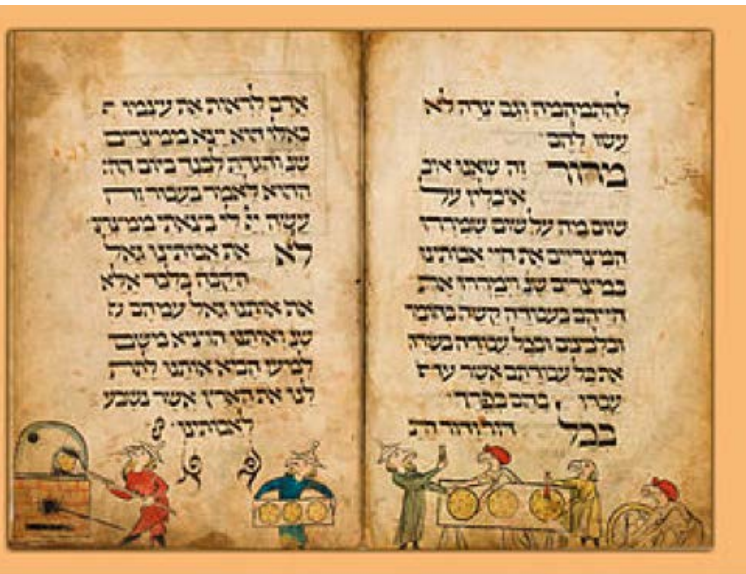 להתמהמה וגם צדה לא
עשו להם
מרור זה שאנו
אוכלין על
שום מה על שום שמררו
המצריים את חיי אבותינו
במצרים שנ וימררו את
חייהם בעבודה קשה בחומר
ובלבנים ובכל עבודה בשדה
את כל עבודתם אשר
עבדו בהם בפרך
בכל דור ודור
אדם לראות את עצמו
כאלו הוא יצא ממצרים
שנ והגדת לבנך ביום הה
ההוא לאמר בעבור זה
עשה לי בצאתי ממצרים
לא את אבותינו גאל
הקבה בלבד אלא
אותנו גאל עמהם
שנ ואותנו הוציא משם
למען הביא אותנו לתת
לנו את הארץ אשר נשבע
לאבותינו